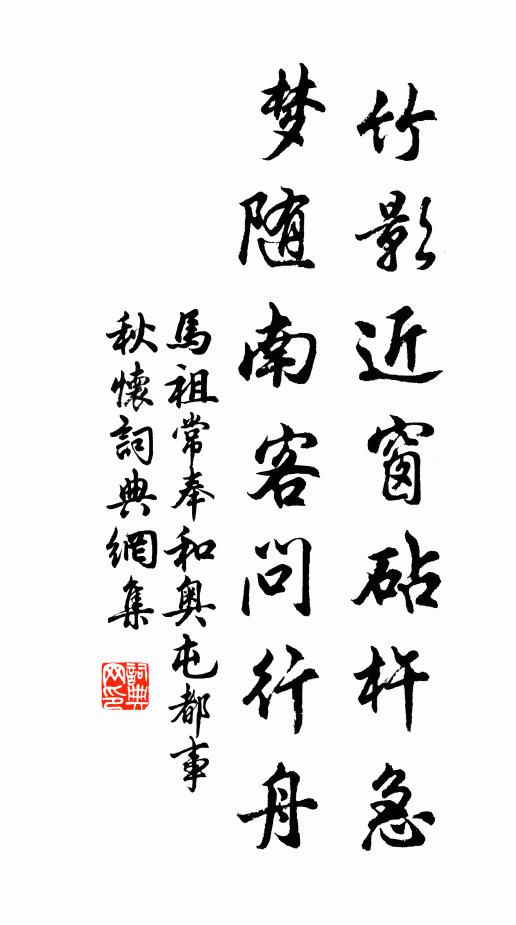 竹影近窗砧杵急
梦随南客问行舟
馬祖常奉和奥屯都事
秋懷詞典網集
詞典
网印